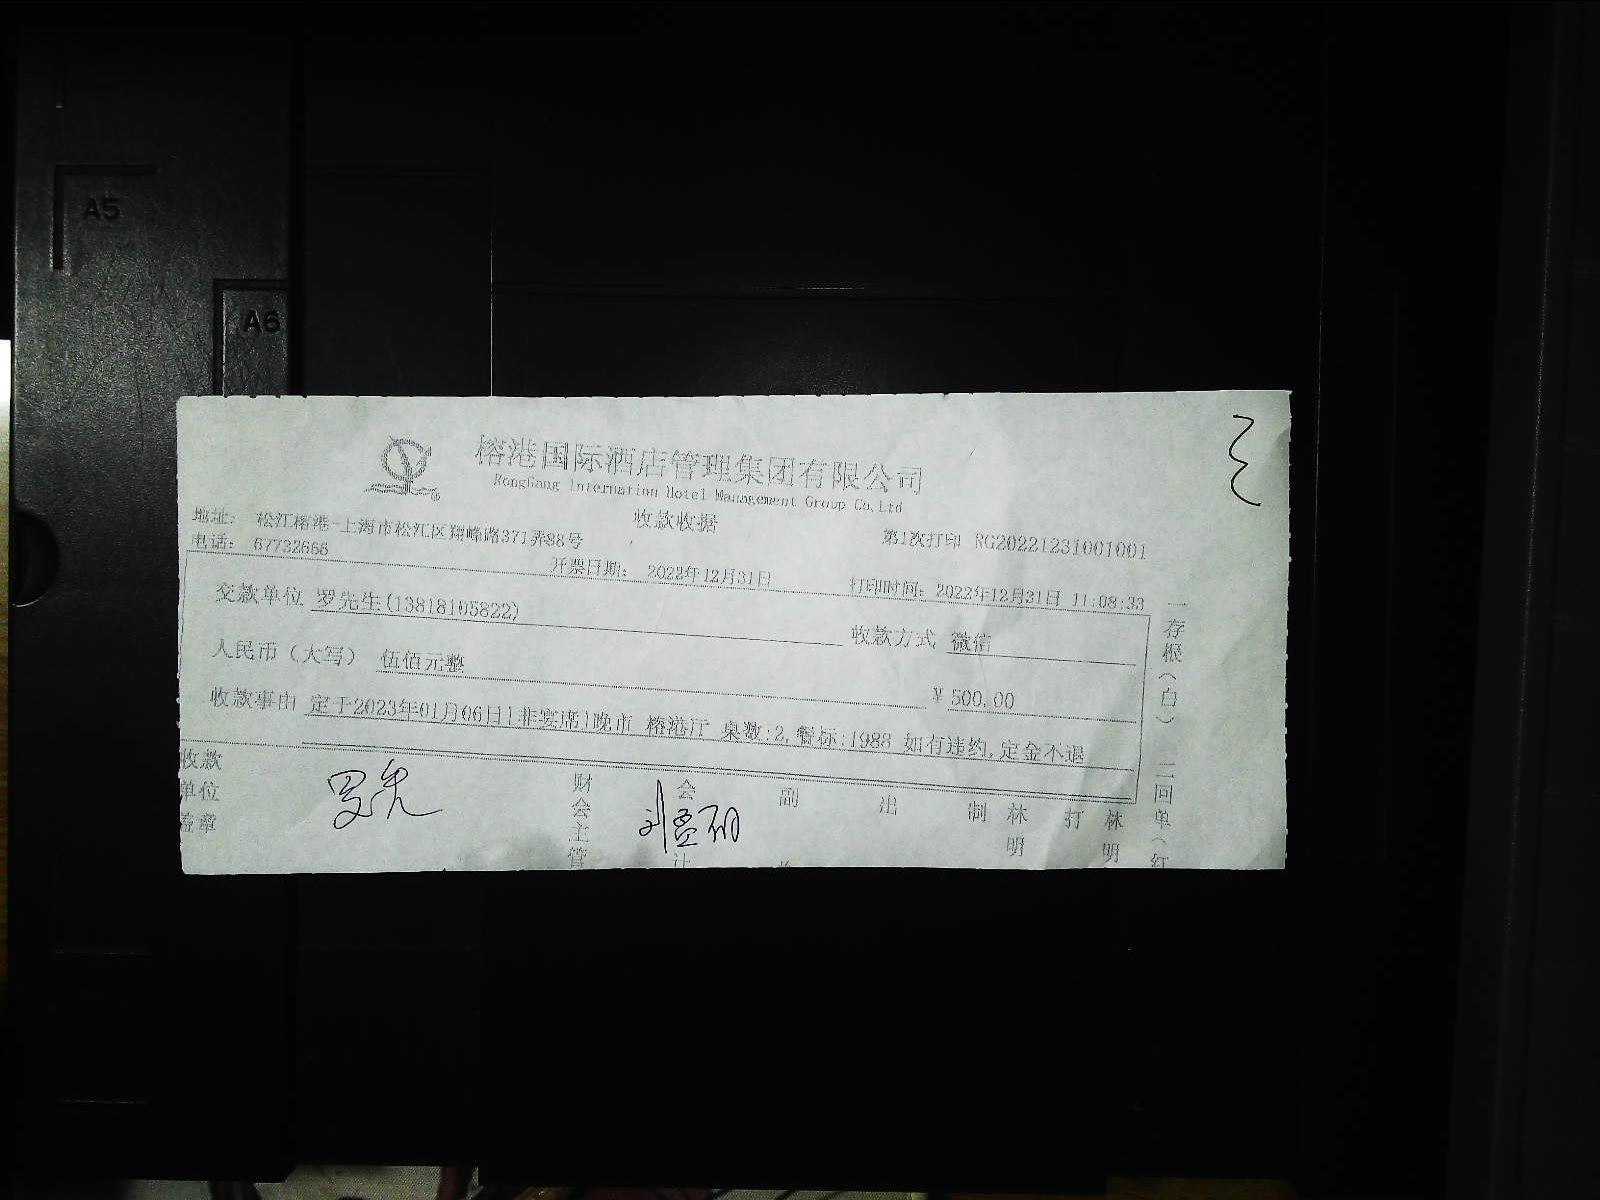 A5
A6
榕港国际酒店管理集团有限公司
RongGang Internation Hotel Management Group Co,Ltd
收款收据
地址: 松江榕港-上海市松江区翔峰路371弄88号
第1次打印 RG20221231001001
电话: 67732666
开票日期: 2022年12月31日
打印时间: 2022年12月31日 11:08:33
交款单位 罗先生(13818105822)
收款方式 微信
人民币（大写） 伍佰元整
￥500.00
收款事由 定于2023年01月06日[非宴席]晚市 榕港厅 桌数:2,餐标:1988 如有违约,定金不退
收款单位盖章
罗先
财会主管
会计
刘
副
出
制
林明
打
林明
一存根（白） 二回单（红